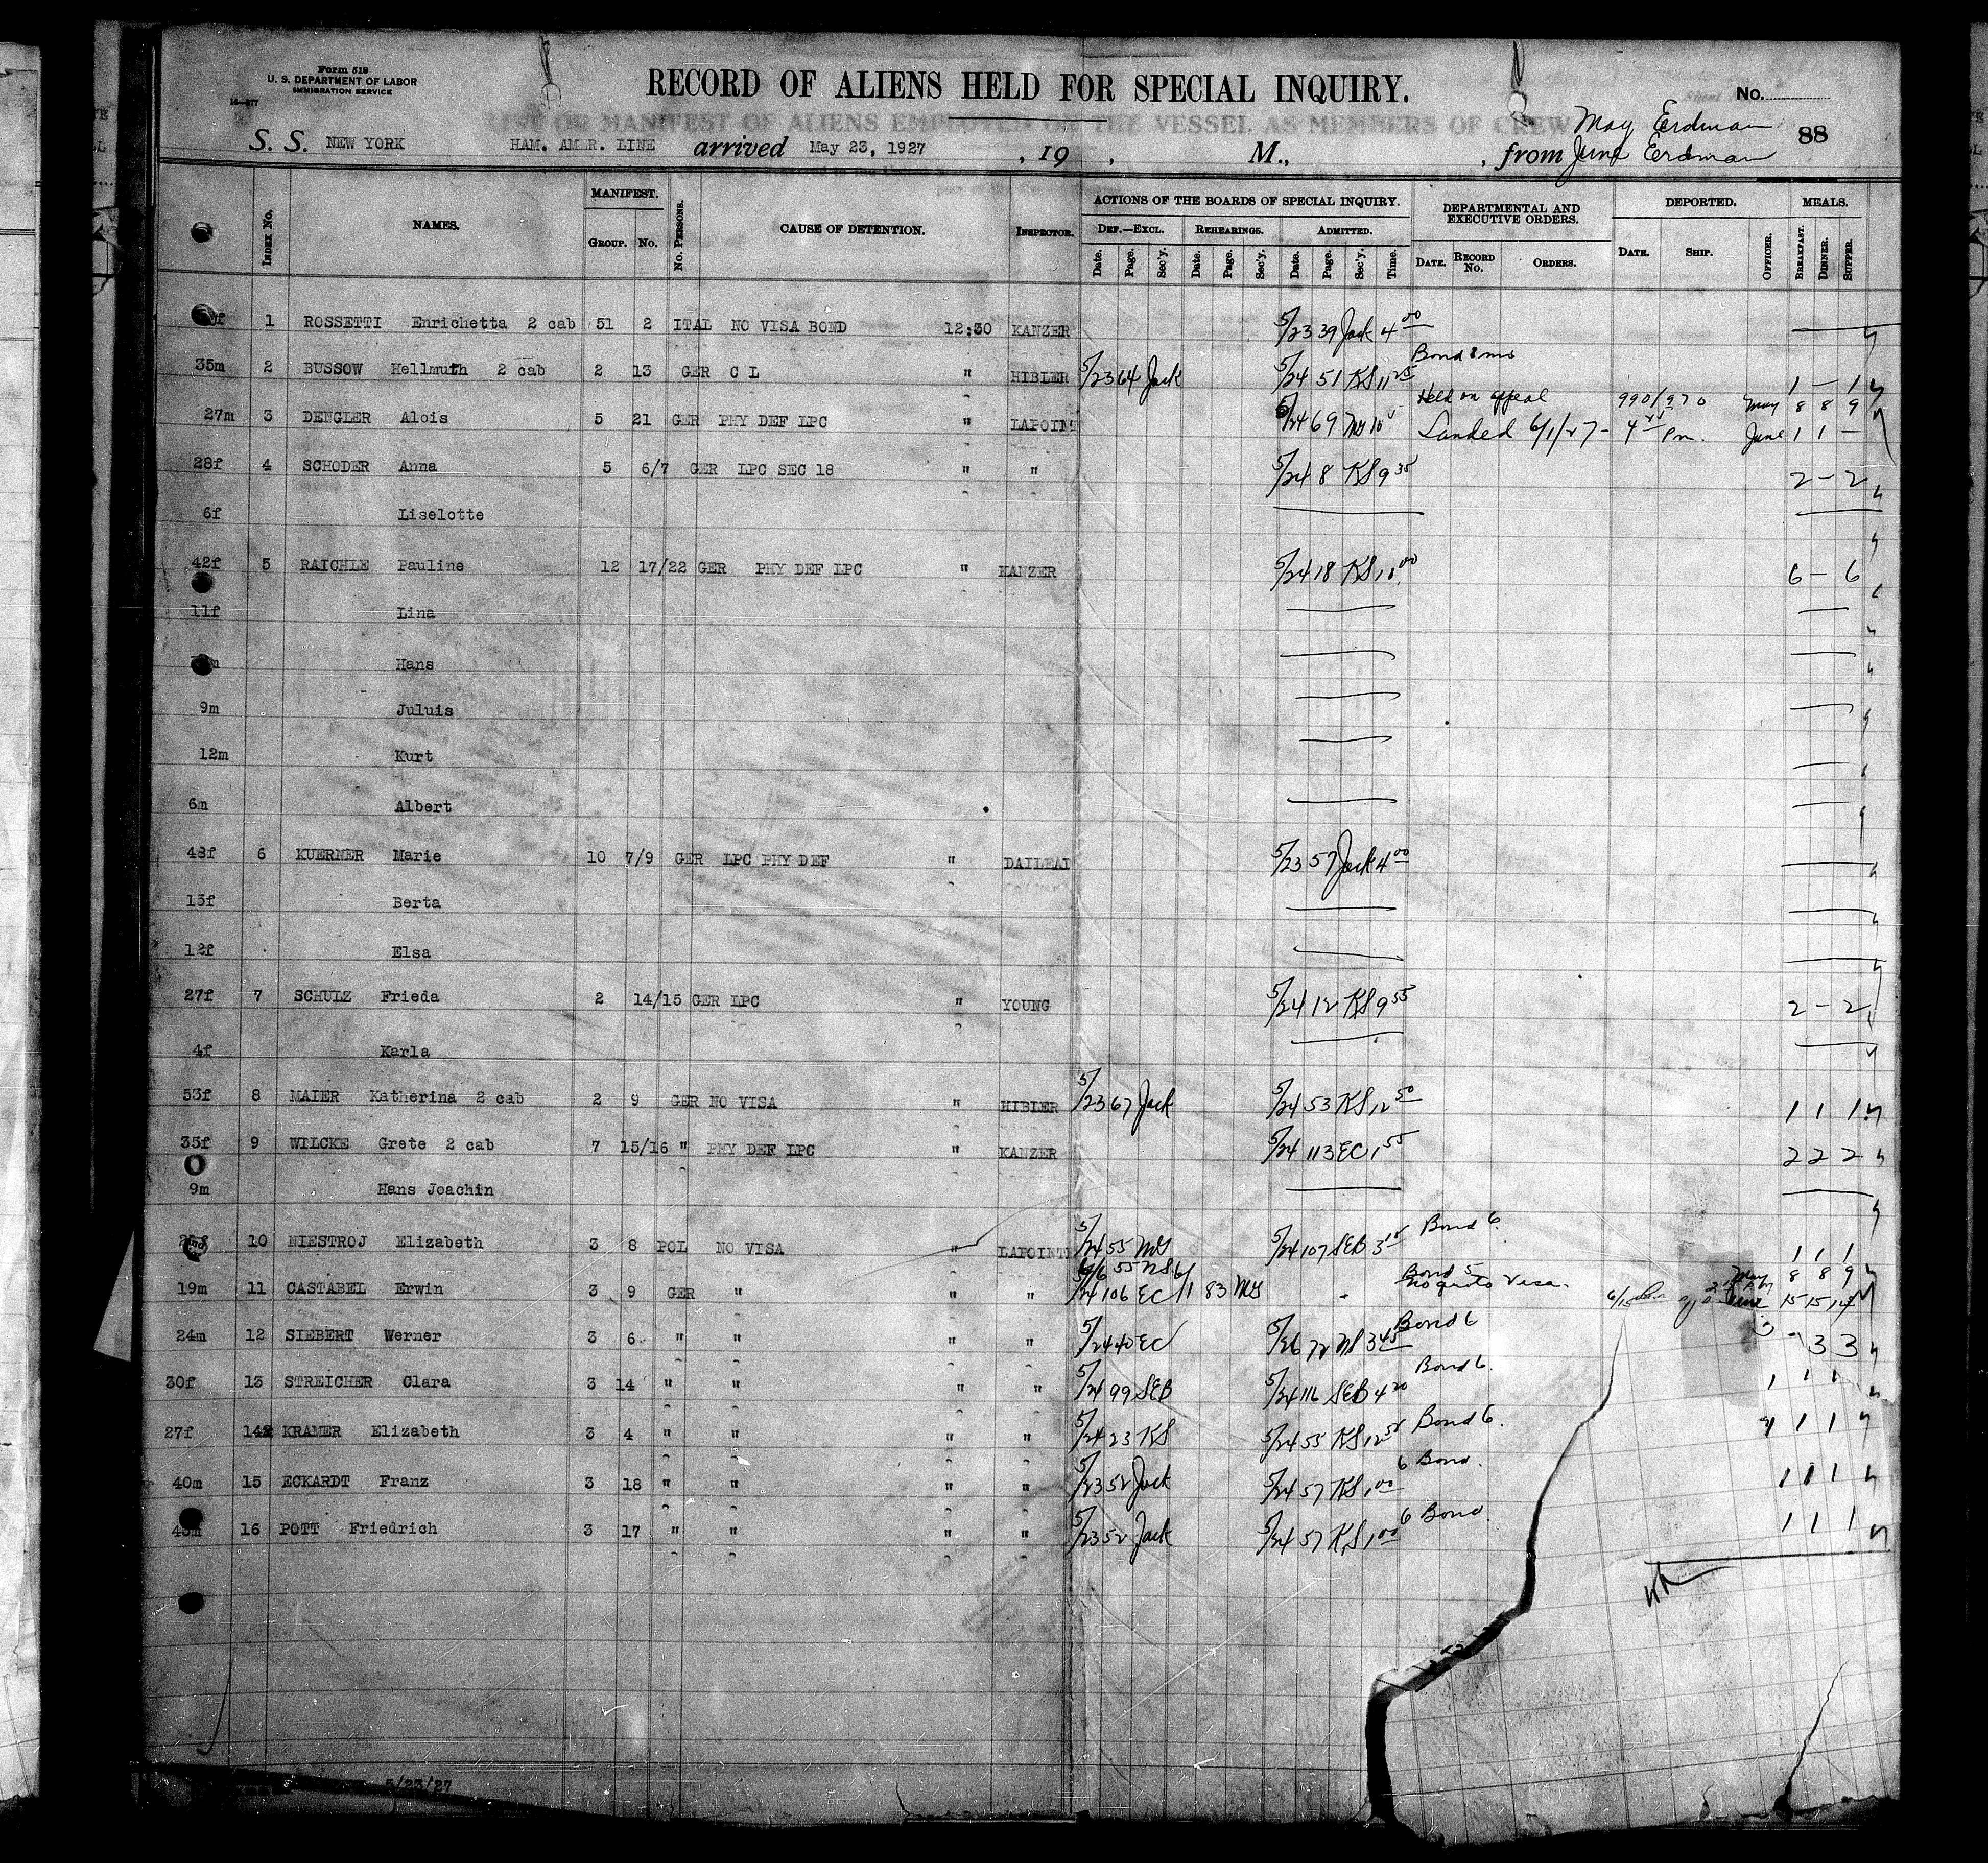 Form 518
U. S. DEPARTMENT OF LABOR
IMMIGRATION SERVICE
14-577
RECORD OF ALIENS HELD FOR SPECIAL INQUIRY.
No.
LIST OR MANIFEST OF ALIENS EMPLOYED ON THE VESSEL AS MEMBERS OF CREW
May Erdman
88
S. S. NEW YORK HAM. AMER. LINE arrived May 23, 1927 , 19 , M., , from June Erdman
INDEX No. NAMES. MANIFEST. GROUP. No. No. PERSONS. CAUSE OF DETENTION. INSPECTOR. ACTIONS OF THE BOARDS OF SPECIAL INQUIRY. DEPARTMENTAL AND EXECUTIVE ORDERS. DEPORTED. MEALS.
DEF.—EXCL. REHEARINGS. ADMITTED.
Date. Page. Sec'y. Date. Page. Sec'y. Date. Page. Sec'y. Time. DATE. RECORD No. ORDERS. DATE. SHIP. OFFICER. BREAKFAST. DINNER. SUPPER.
1 ROSSETTI Enrichetta 2 cab 51 2 ITAL NO VISA BOND 12:30 KANZER 5/23 39 Jack 4 00
Bond 8 mos
35m 2 BUSSOW Hellmuth 2 cab 2 13 GER C L " HIBLER 5/23 64 Jack 5/24 51 KS 11 25 1 — 1
Held on appeal 990/970 May 8 8 9
27m 3 DENGLER Alois 5 21 GER PHY DEF LPC " LAPOINT 5/24 69 Landed 6/1/27 - 4 Pm. June 1 1 —
28f 4 SCHODER Anna 5 6/7 GER LPC SEC 18 " " 5/24 8 KS 9 35 2 — 2
6f Liselotte
42f 5 RAICHLE Pauline 12 17/22 GER PHY DEF LPC " KANZER 5/24 18 KS 10 00 6 — 6
11f Lina
Hans
9m Juluis
12m Kurt
6m Albert
48f 6 KUERNER Marie 10 7/9 GER LPC PHY DEF " DAILEAI 5/23 57 Jack 4 00
15f Berta
12f Elsa
27f 7 SCHULZ Frieda 2 14/15 GER LPC " YOUNG 5/24 12 KS 9 55 2 — 2
4f Karla
53f 8 MAIER Katherina 2 cab 2 9 GER NO VISA " HIBLER 5/23 67 Jack 5/24 53 KS 12 50 1 1 1
35f 9 WILCKE Grete 2 cab 7 15/16 " PHY DEF LPC " KANZER 5/24 113 EC 1 55 2 2 2
9m Hans Joachin
10 NIESTROJ Elizabeth 3 8 POL NO VISA " LAPOINTE 5/24 55 MG 5/24 107 SEB 3 15 Bond 6. 1 1 1
Bond 5 May 8 8 9
19m 11 CASTABEL Erwin 3 9 GER " " " 5/24 106 EC 6/1 83 MG Visa. June 15 15 14
24m 12 SIEBERT Werner 3 6 " " " " 5/24 40 EC 5/26 72 3 45 Bond 6 3 3
30f 13 STREICHER Clara 3 14 " " " " 5/24 99 SEB 5/24 116 SEB 4 20 Bond 6. 1 1 1
27f 14 KRAMER Elizabeth 3 4 " " " " 5/24 23 KS 5/24 55 KS 12 Bond 6. 1 1
40m 15 ECKARDT Franz 3 18 " " " " 5/23 52 Jack 5/24 57 KS 1 00 6 Bond. 1 1 1
16 POTT Friedrich 3 17 " " " " 5/23 52 Jack 5/24 57 KS 1 00 6 Bond. 1 1 1
5/23/27